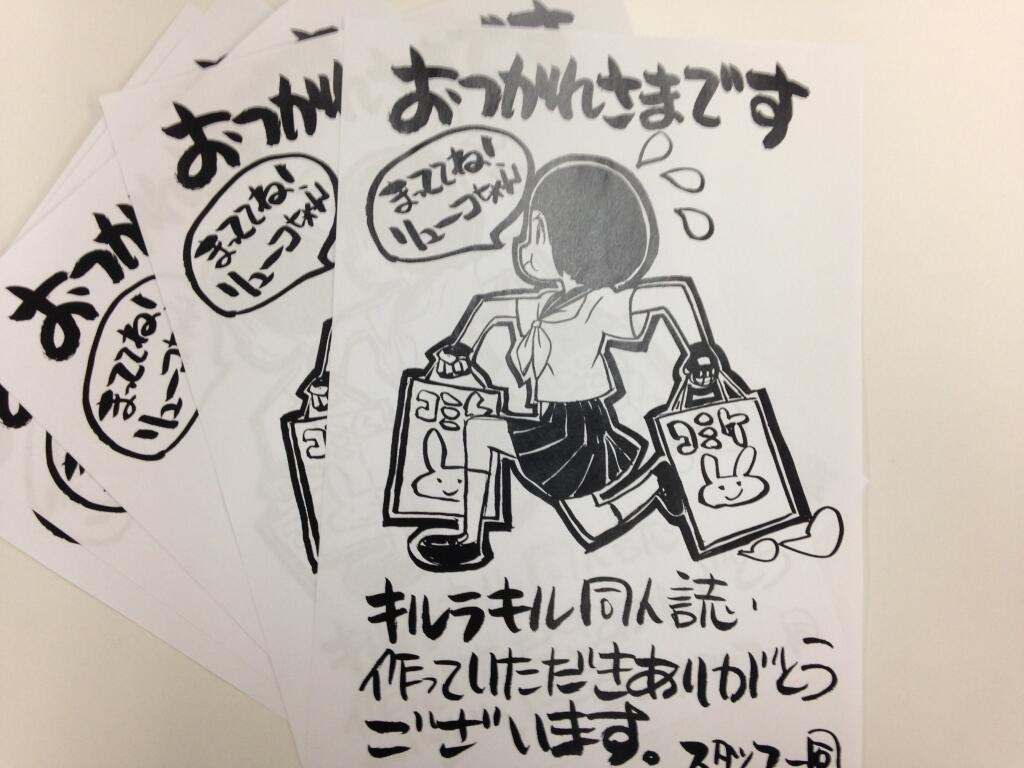 おつかれさまです
まっててね!
リューコちゃん
コミケ
コミケ
キルラキル同人誌
作っていただきありがとう
ございます。
スタッフ一同
おつか
まっててね!
リューコちゃん
コ
おつか
まっててね!
リューコ